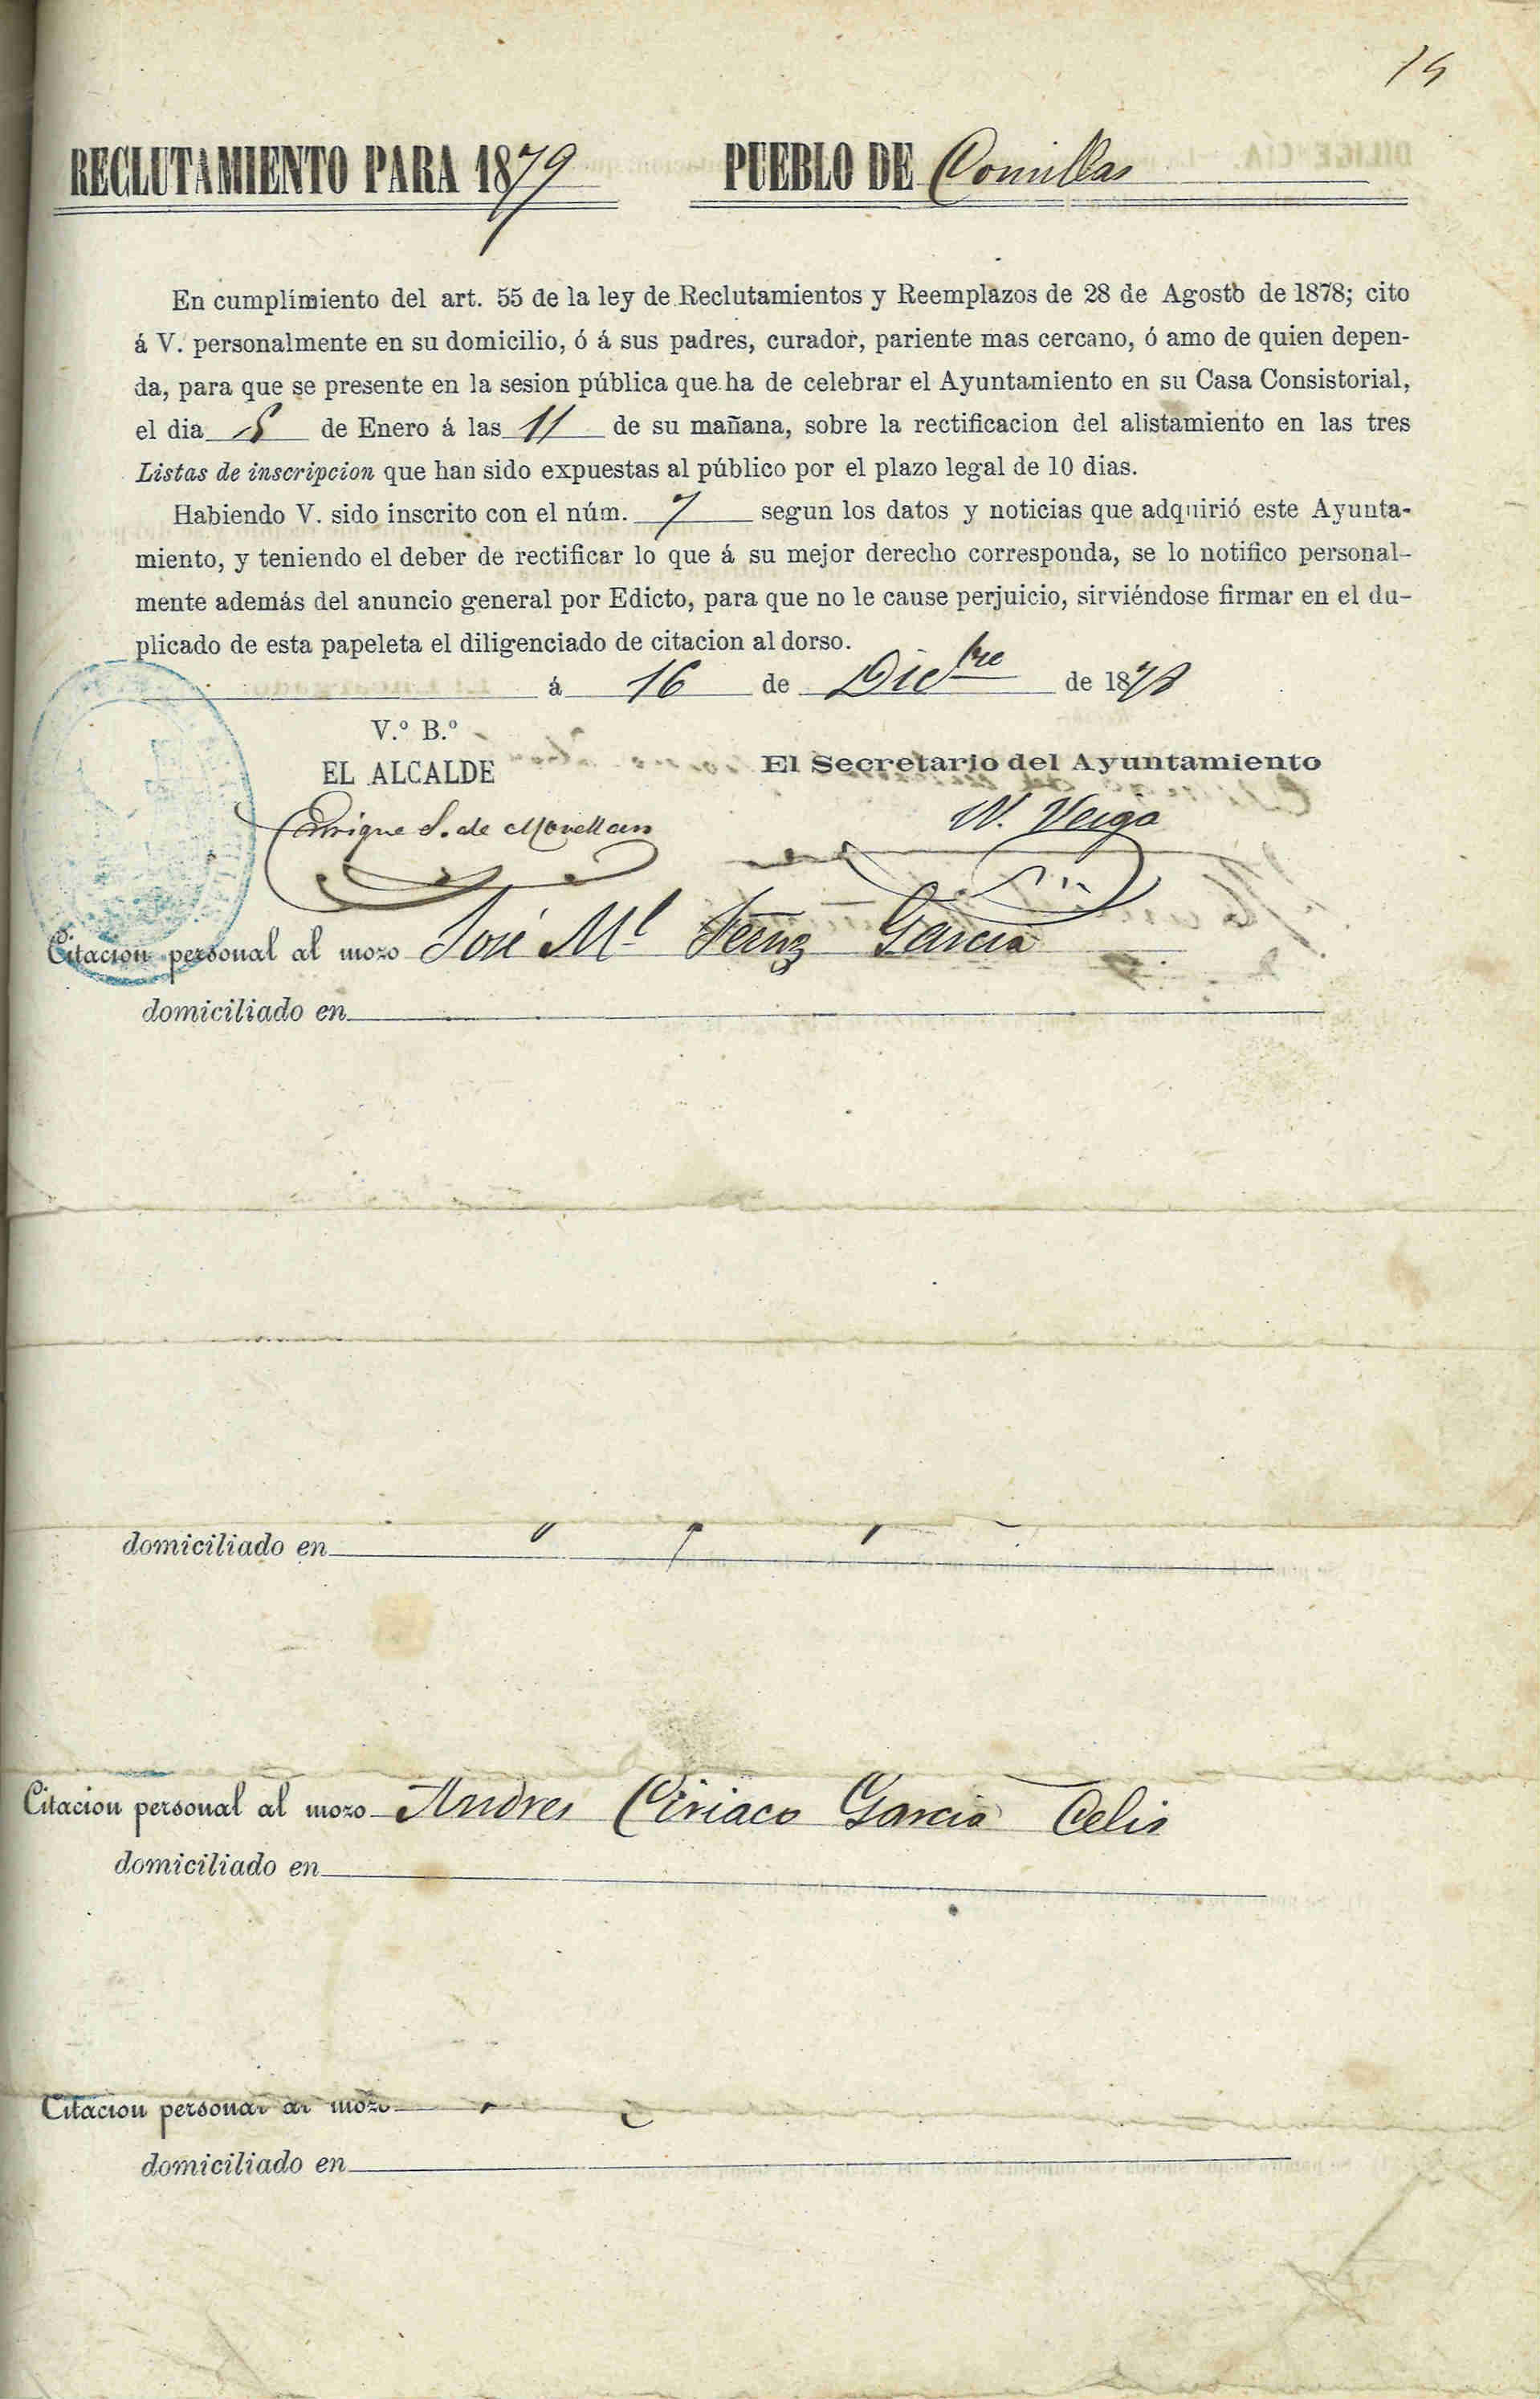 15
RECLUTAMIENTO PARA 1879 PUEBLO DE Comillas
En cumplimiento del art. 55 de la ley de Reclutamientos y Reemplazos de 28 de Agosto de 1878; cito
á V. personalmente en su domicilio, ó á sus padres, curador, pariente mas cercano, ó amo de quien depen-
da, para que se presente en la sesion pública que ha de celebrar el Ayuntamiento en su Casa Consistorial,
el dia 5 de Enero á las 11 de su mañana, sobre la rectificacion del alistamiento en las tres
Listas de inscripcion que han sido expuestas al público por el plazo legal de 10 dias.
Habiendo V. sido inscrito con el núm. 7 segun los datos y noticias que adquirió este Ayunta-
miento, y teniendo el deber de rectificar lo que á su mejor derecho corresponda, se lo notifico personal-
mente además del anuncio general por Edicto, para que no le cause perjuicio, sirviéndose firmar en el du-
plicado de esta papeleta el diligenciado de citacion al dorso.
á 16 de Dicbre de 1878
V.º B.º
EL ALCALDE El Secretario del Ayuntamiento
Enrique S. de Movellan N. Veiga
Citacion personal al mozo José Mª Fernz Garcia
domiciliado en
domiciliado en
Citacion personal al mozo Andres Ciriaco Garcia Celis
domiciliado en
Citacion personal al mozo
domiciliado en